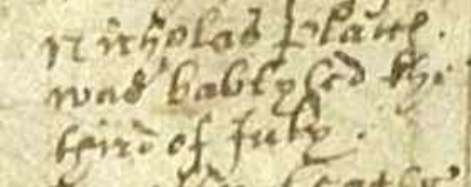 Nicholas
was babtysed the
third of July.